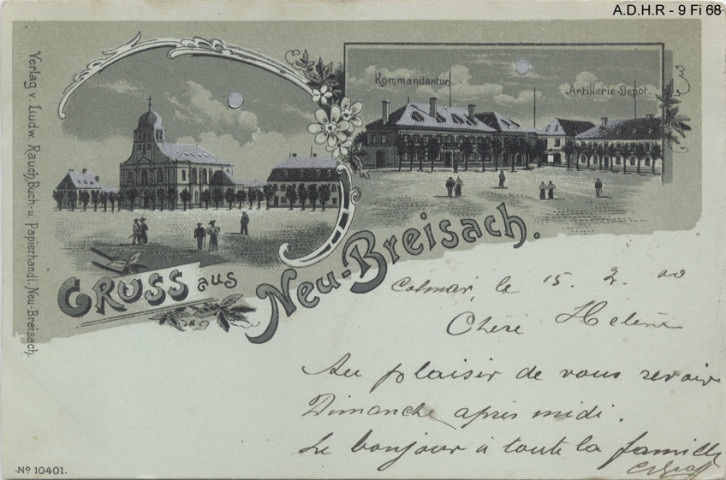 A.D.H.R - 9 Fi 68
Kommandantur.
Artillerie-Depot.
Verlag v. Ludw. Rauch, Buch- u. Papierhandl. Neu-Breisach.
GRUSS aus
Neu-Breisach.
Colmar, le 15. 2. 00
Chère Hélène
Au plaisir de vous revoir
Dimanche après midi.
Le bonjour à toute la famille
No 10401.